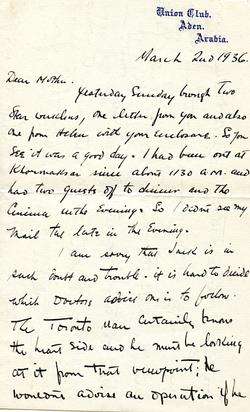 Union Club.
Aden.
Arabia.
March 2nd 1936.
Dear Mother.
Yesterday Sunday brough Two
Star wireless, one letter from you and also
one from Helen with your enclosure. So you
see it was a good day. I had been out at
Khormaksar since about 1130 a.m. and
had two guests of to dinner and the
Cinema in the Evening. So I didnt see my
mail till late in the Evening.
I am sorry that is in
such doubt and trouble. it is hard to decide
which Doctors advice one is to follow.
The Toronto man certainly knows
the heart side and he must be looking
at it from that viewpoint; he
wouldnt advise an operation if he